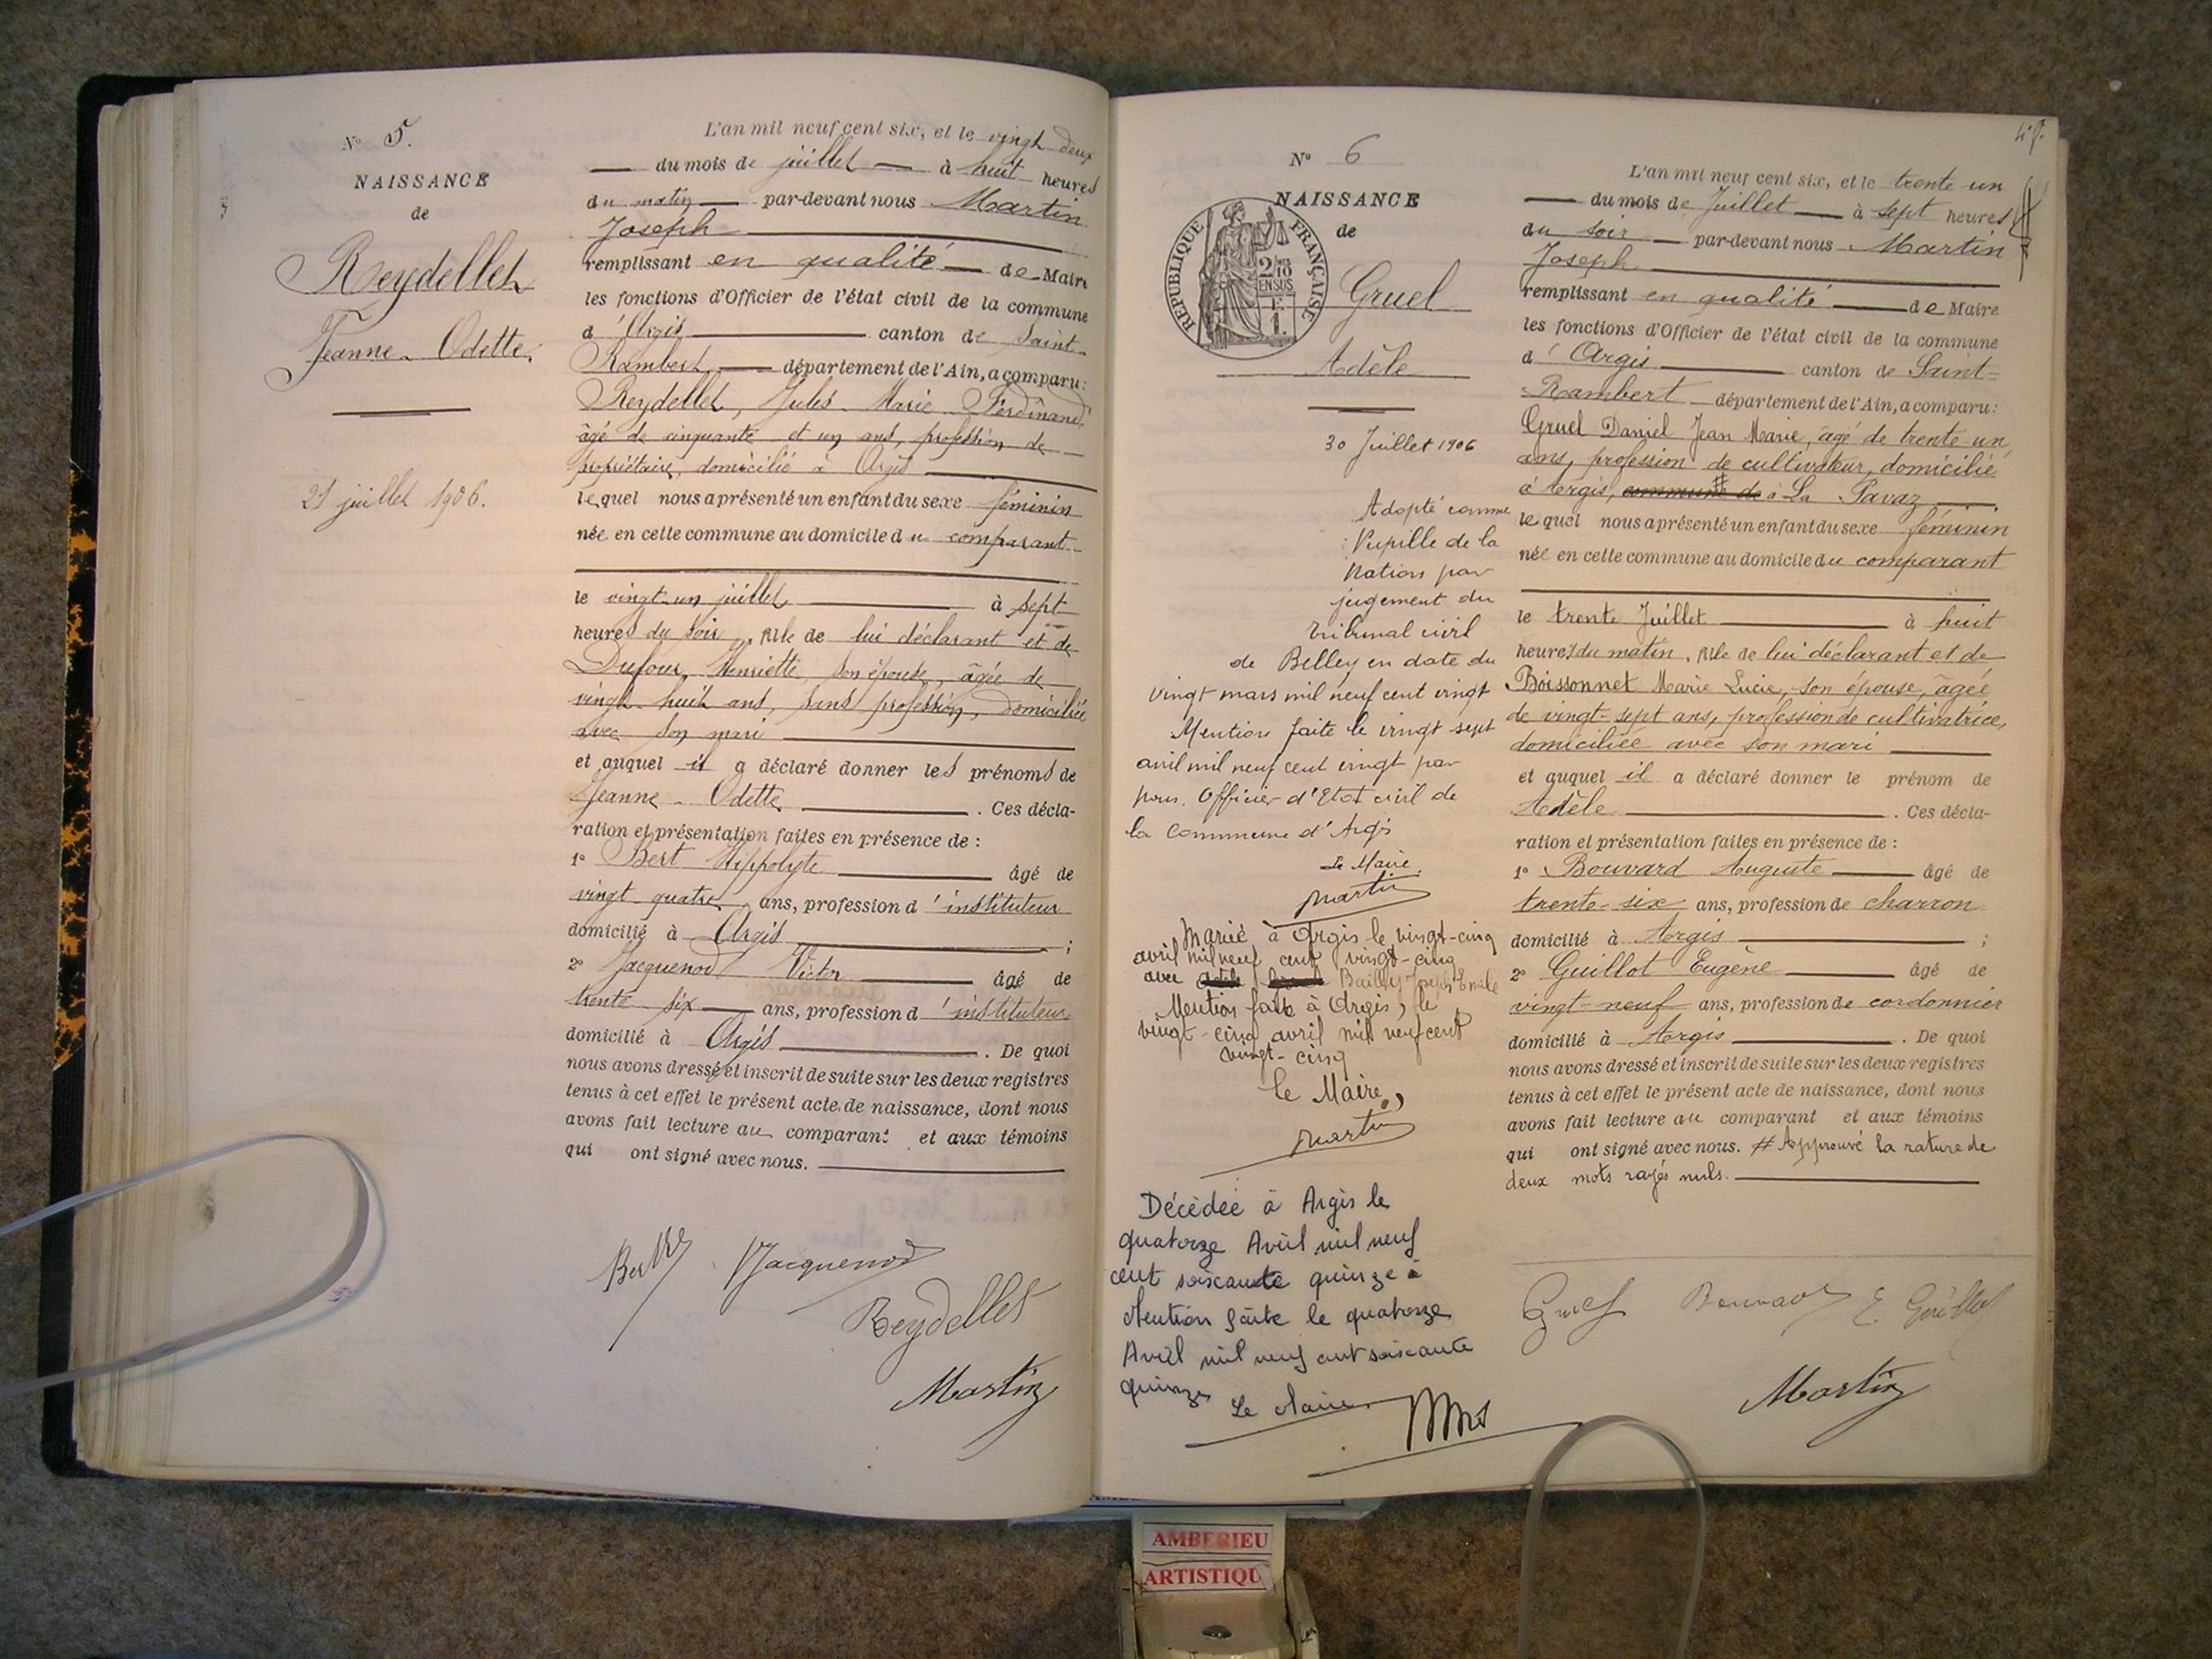 N° 5.
NAISSANCE
de
Reydellet
Jeanne-Odette.
21 juillet 1906.
L'an mil neuf cent six, et le vingt deux
du mois de juillet à huit heures
du matin par-devant nous Martin
Joseph
remplissant en qualité de Maire
les fonctions d'Officier de l'état civil de la commune
d'Argis canton de Saint-
Rambert département de l'Ain, a comparu:
Reydellet, Jules Marie Ferdinand,
âgé de cinquante et un ans, profession de
propriétaire, domicilié à Argis
lequel nous a présenté un enfant du sexe féminin
née en cette commune au domicile du comparant
le vingt-un juillet à sept
heures du soir, fille de lui déclarant et de
Dufour, Henriette, son épouse, âgée de
vingt-huit ans, sans profession, domiciliée
avec son mari
et auquel il a déclaré donner les prénoms de
Jeanne-Odette. Ces décla-
ration et présentation faites en présence de :
1° Bert Hippolyte âgé de
vingt quatre ans, profession d'instituteur
domicilié à Argis ;
2° Jacquenod Victor âgé de
trente six ans, profession d'instituteur
domicilié à Argis. De quoi
nous avons dressé et inscrit de suite sur les deux registres
tenus à cet effet le présent acte de naissance, dont nous
avons fait lecture au comparant et aux témoins
qui ont signé avec nous.
Bert VJacquenod
Reydellet
Martin
N° 6
NAISSANCE
de
RÉPUBLIQUE FRANÇAISE
2/10
EN SUS
1 F.
Gruel
Adèle
30 Juillet 1906
Adopté comme
Pupille de la
Nation par
jugement du
Tribunal civil
de Belley en date du
vingt mars mil neuf cent vingt
Mention faite le vingt sept
avril mil neuf cent vingt par
nous. Officier d'Etat civil de
la Commune d'Argis
Le Maire
Martin
Marié à Argis le vingt-cinq
avril mil neuf cent vingt-cinq
avec Bailly Joseph Emile
Mention faite à Argis, le
vingt-cinq avril mil neuf cent
vingt-cinq
Le Maire,
Martin
Décédée à Argis le
quatorze Avril mil neuf
cent soixante quinze à
Mention faite le quatorze
Avril mil neuf cent soixante
quinze Le Maire
L'an mil neuf cent six, et le trente un
du mois de Juillet à sept heures
du soir par-devant nous Martin
Joseph
remplissant en qualité de Maire
les fonctions d'Officier de l'état civil de la commune
d'Argis canton de Saint-
Rambert département de l'Ain, a comparu:
Gruel Daniel Jean Marie, âgé de trente-un
ans, profession de cultivateur, domicilié
à Argis, commune de # à La Pavaz
lequel nous a présenté un enfant du sexe féminin
née en cette commune au domicile du comparant
le trente Juillet à huit
heures du matin, fille de lui déclarant et de
Boissonnet Marie Lucie, son épouse, âgée
de vingt-sept ans, profession de cultivatrice,
domiciliée avec son mari
et auquel il a déclaré donner le prénom de
Adèle. Ces décla-
ration et présentation faites en présence de :
1° Bouvard Auguste âgé de
trente-six ans, profession de charron
domicilié à Argis ;
2° Guillot Eugène âgé de
vingt-neuf ans, profession de cordonnier
domicilié à Argis. De quoi
nous avons dressé et inscrit de suite sur les deux registres
tenus à cet effet le présent acte de naissance, dont nous
avons fait lecture au comparant et aux témoins
qui ont signé avec nous. # Approuvé la rature de
deux mots rayés nuls.
Gruel Bouvard E. Guillot
Martin
AMBERIEU
ARTISTIQU